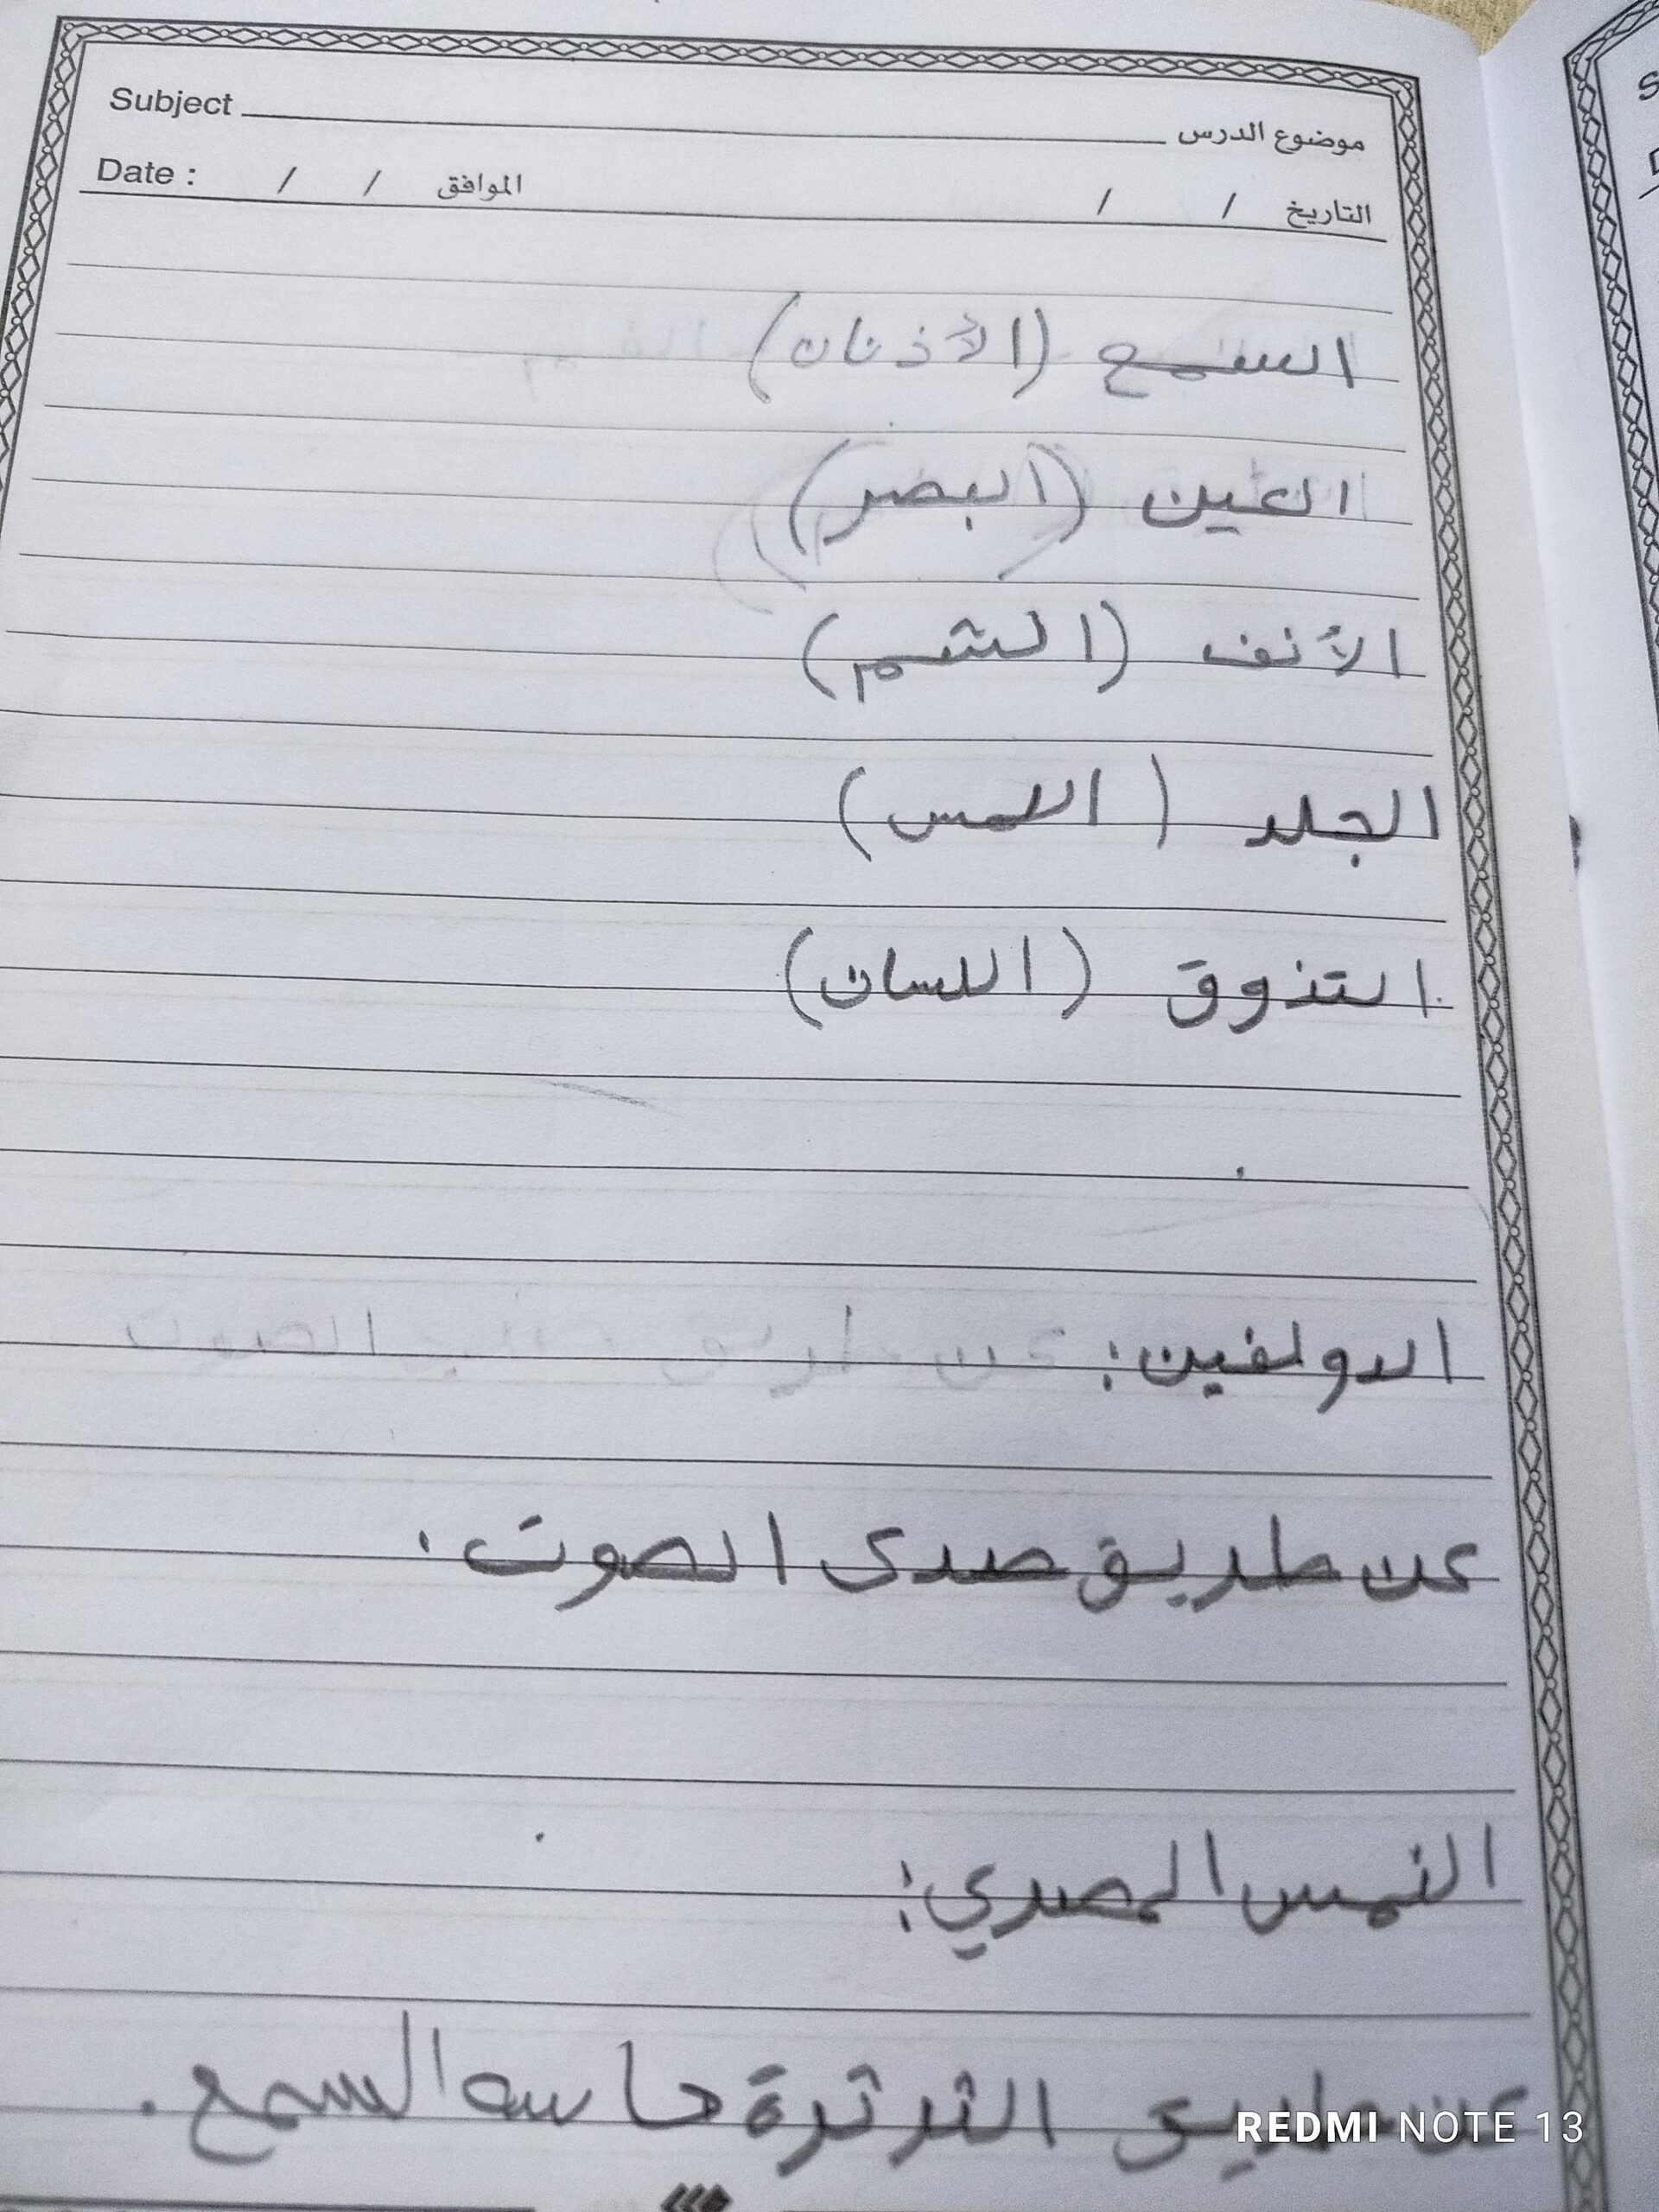 Subject موضوع الدرس
Date : / / الموافق / / التاريخ
السمع (الأذنان)
العين (البصر)
الأنف (الشم)
الجلد (اللمس)
التذوق (اللسان)
الدولفين:
عن طريق صدى الصوت.
النمس المصري:
عن طريق الثرثرة حاسه السمع.
REDMI NOTE 13